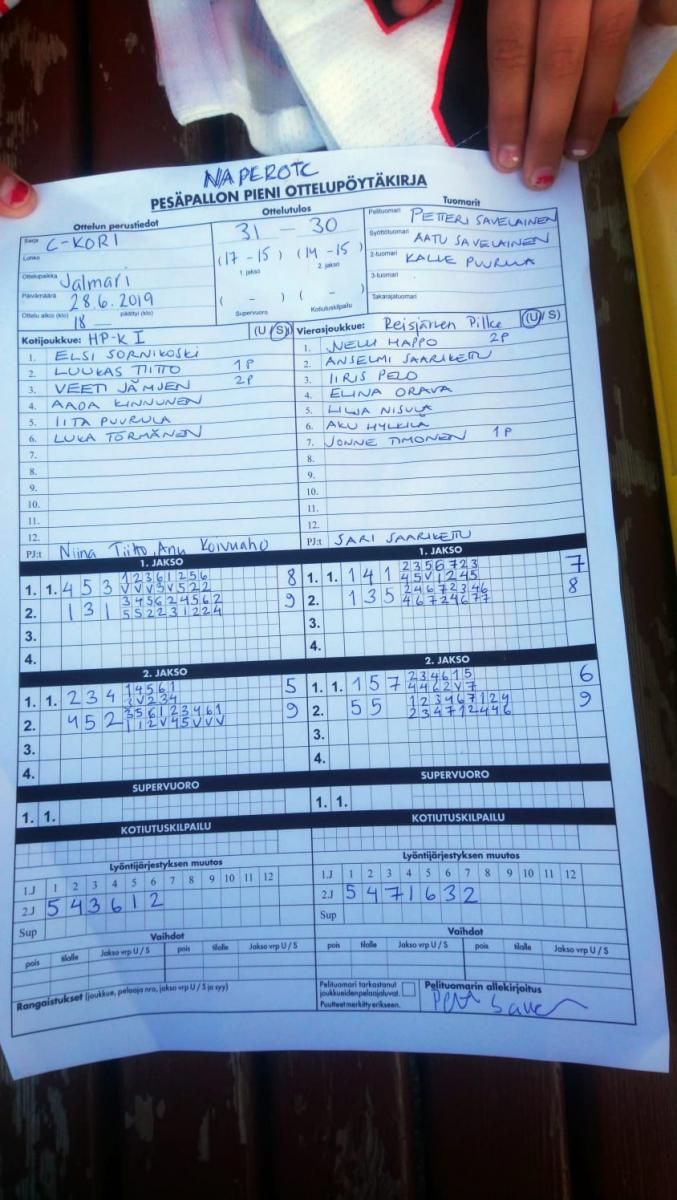 NAPEROTC
PESÄPALLON PIENI OTTELUPÖYTÄKIRJA
Ottelun perustiedot
Sarja C-KORI
Lohko
Ottelupaikka Jalmari
Päivämäärä 28.6.2019
Ottelu alkoi (klo) 18 — päättyi (klo)
Ottelutulos
31 – 30
(17 - 15) (14 - 15)
1. jakso 2. jakso
( - ) ( - )
Supervuoro Kotiutuskilpailu
Tuomarit
Pelituomari PETTERI SAVELAINEN
Syöttötuomari AATU SAVELAINEN
2-tuomari KALLE PUURULA
3-tuomari
Takarajatuomari
Kotijoukkue: HP-K I (U / S)
1. ELSI SORNIKOSKI
2. LUUKAS TIITTO 1P
3. VEETI JÄMJEN 2P
4. AADA KINNUNEN
5. IITA PUURULA
6. LUKA TÖRMÄNEN
7.
8.
9.
10.
11.
12.
PJ:t Niina Tiitto, Anu Koivuaho
Vierasjoukkue: Reisjärven Pilke (U / S)
1. NELLI HAPPO 2P
2. ANSELMI SAARIKETTU
3. IIRIS PELO
4. ELINA ORAVA
5. LILJA NISULA
6. AKU HYLKILÄ
7. JONNE TIMONEN 1P
8.
9.
10.
11.
12.
PJ:t SARI SAARIKETTU
1. JAKSO
1. 1. 4 5 3 1 2 3 6 1 2 5 6 8
V V V 3 V 5 2 2
2. 1 3 1 3 4 5 6 2 4 5 6 2 9
5 5 2 2 3 1 2 2 4
3.
4.
1. JAKSO
1. 1. 1 4 1 2 3 5 6 7 2 3 7
4 5 V 1 2 4 5
2. 1 3 5 2 4 6 7 2 3 4 6 8
4 6 7 2 4 6 7 7
3.
4.
2. JAKSO
1. 1. 2 3 4 1 4 5 6 1 5
3 V 2 3 4
2. 4 5 2 3 5 6 1 2 3 4 6 1 9
1 1 2 V 4 5 V V V
3.
4.
2. JAKSO
1. 1. 1 5 7 2 3 4 6 1 5 6
4 4 6 2 V 7
2. 5 5 1 2 3 4 6 7 1 2 4 9
2 3 4 7 1 2 4 4 6
3.
4.
SUPERVUORO
1. 1.
SUPERVUORO
1. 1.
KOTIUTUSKILPAILU
KOTIUTUSKILPAILU
Lyöntijärjestyksen muutos
1.J 1 2 3 4 5 6 7 8 9 10 11 12
2.J 5 4 3 6 1 2
Sup
Lyöntijärjestyksen muutos
1.J 1 2 3 4 5 6 7 8 9 10 11 12
2.J 5 4 7 1 6 3 2
Sup
Vaihdot
pois tilalle Jakso vrp U / S pois tilalle Jakso vrp U / S
Vaihdot
pois tilalle Jakso vrp U / S pois tilalle Jakso vrp U / S
Rangaistukset (joukkue, pelaaja nro, jakso vrp U / S ja syy)
Pelituomari tarkastanut
joukkueiden pelaajaluvat.
Puutteet merkitty erikseen.
Pelituomarin allekirjoitus